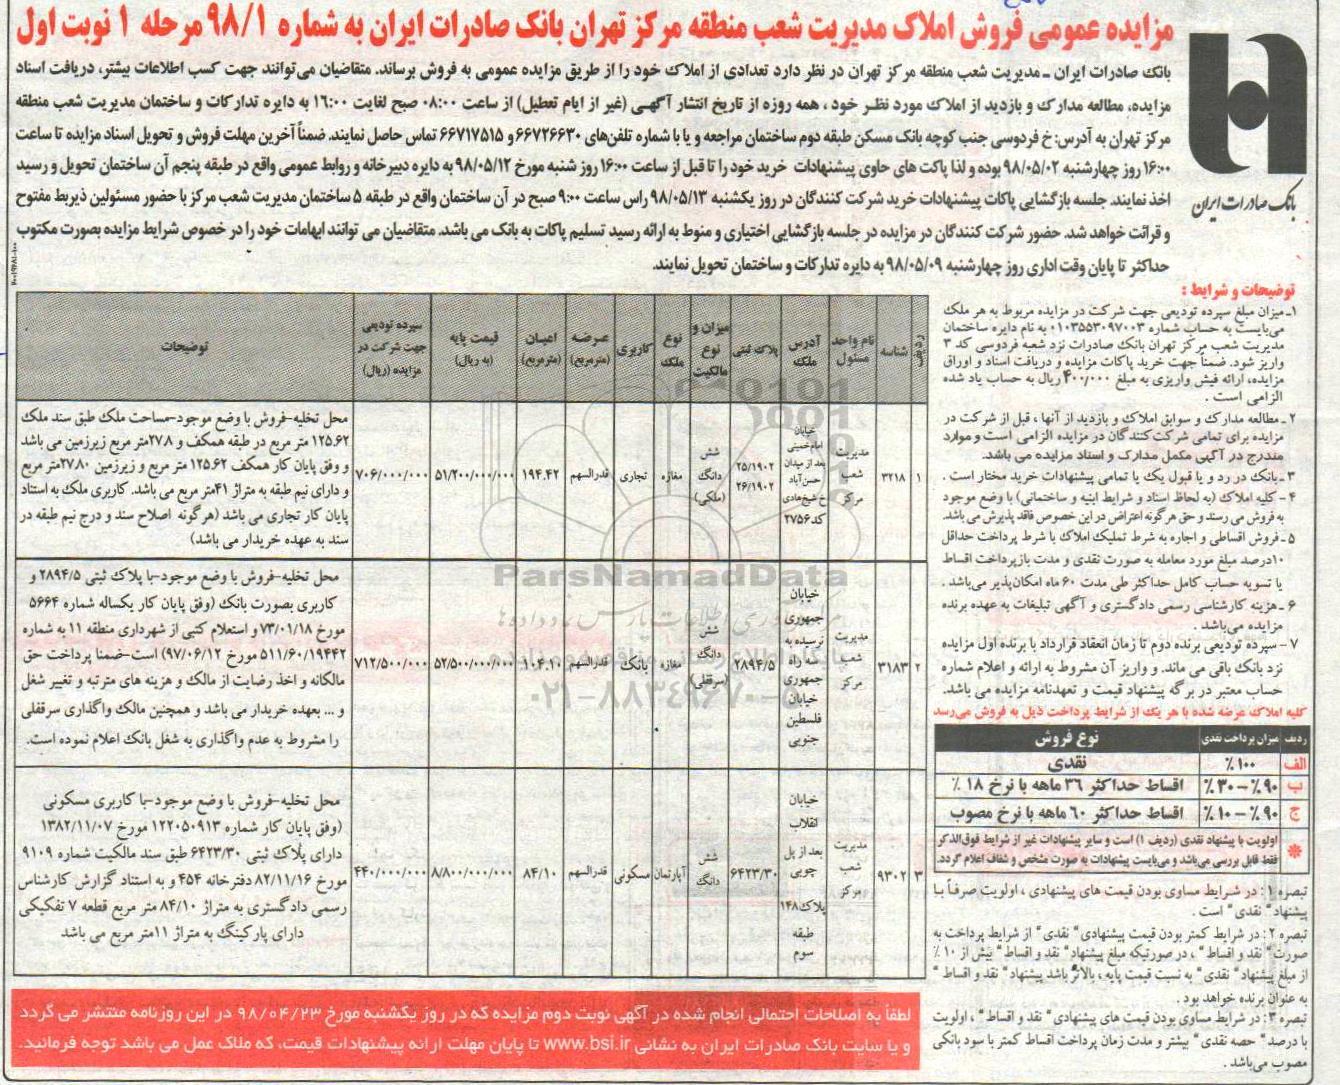 مزایده عمومی فروش املاک مدیریت شعب منطقه مرکز تهران بانک صادرات ایران به شماره ۹۸/۱ مرحله ۱ نوبت اول
بانک صادرات ایران
بانک صادرات ایران ـ مدیریت شعب منطقه مرکز تهران در نظر دارد تعدادی از املاک خود را از طریق مزایده عمومی به فروش برساند. متقاضیان می‌توانند جهت کسب اطلاعات بیشتر، دریافت اسناد
مزایده، مطالعه مدارک و بازدید از املاک مورد نظر خود ، همه روزه از تاریخ انتشار آگهی (غیر از ایام تعطیل) از ساعت ۰۸:۰۰ صبح لغایت ۱۶:۰۰ به دایره تدارکات و ساختمان مدیریت شعب منطقه
مرکز تهران به آدرس: خ فردوسی جنب کوچه بانک مسکن طبقه دوم ساختمان مراجعه و یا با شماره تلفن‌های ۶۶۷۲۶۶۳۰ و ۶۶۷۱۷۵۱۵ تماس حاصل نمایند. ضمناً آخرین مهلت فروش و تحویل اسناد مزایده تا ساعت
۱۶:۰۰ روز چهارشنبه ۹۸/۰۵/۰۲ بوده و لذا پاکت های حاوی پیشنهادات خرید خود را تا قبل از ساعت ۱۶:۰۰ روز شنبه مورخ ۹۸/۰۵/۱۲ به دایره دبیرخانه و روابط عمومی واقع در طبقه پنجم آن ساختمان تحویل و رسید
اخذ نمایند. جلسه بازگشایی پاکات پیشنهادات خرید شرکت کنندگان در روز یکشنبه ۹۸/۰۵/۱۳ راس ساعت ۹:۰۰ صبح در آن ساختمان واقع در طبقه ۵ ساختمان مدیریت شعب مرکز با حضور مسئولین ذیربط مفتوح
و قرائت خواهد شد. حضور شرکت کنندگان در مزایده در جلسه بازگشایی اختیاری و منوط به ارائه رسید تسلیم پاکات به بانک می باشد. متقاضیان می توانند ابهامات خود را در خصوص شرایط مزایده بصورت مکتوب
حداکثر تا پایان وقت اداری روز چهارشنبه ۹۸/۰۵/۰۹ به دایره تدارکات و ساختمان تحویل نمایند.
توضیحات و شرایط :
۱ـ میزان مبلغ سپرده تودیعی جهت شرکت در مزایده مربوط به هر ملک
می‌بایست به حساب شماره ۰۱۰۳۵۵۳۰۹۷۰۰۳ به نام دایره ساختمان
مدیریت شعب مرکز تهران بانک صادرات نزد شعبه فردوسی کد ۳
واریز شود. ضمناً جهت خرید پاکات مزایده و دریافت اسناد و اوراق
مزایده، ارائه فیش واریزی به مبلغ ۴۰۰/۰۰۰ ریال به حساب یاد شده
الزامی است .
۲ ـ مطالعه مدارک و سوابق املاک و بازدید از آنها ، قبل از شرکت در
مزایده برای تمامی شرکت کنندگان در مزایده الزامی است و موارد
مندرج در آگهی مکمل مدارک و اسناد مزایده می باشد.
۳ ـ بانک در رد و یا قبول یک یا تمامی پیشنهادات خرید مختار است .
۴ - کلیه املاک (به لحاظ اسناد و شرایط ابنیه و ساختمانی) با وضع موجود
به فروش می رسند و حق هرگونه اعتراض در این خصوص فاقد پذیرش می باشد.
۵ ـ فروش اقساطی و اجاره به شرط تملیک املاک با شرط پرداخت حداقل
۱۰درصد مبلغ مورد معامله به صورت نقدی و مدت بازپرداخت اقساط
یا تسویه حساب کامل حداکثر طی مدت ۶۰ ماه امکان‌پذیر می‌باشد .
۶ ـ هزینه کارشناسی رسمی دادگستری و آگهی تبلیغات به عهده برنده
مزایده می‌باشد .
۷ - سپرده تودیعی برنده دوم تا زمان انعقاد قرارداد با برنده اول مزایده
نزد بانک باقی می ماند. و واریز آن مشروط به ارائه و اعلام شماره
حساب معتبر در برگه پیشنهاد قیمت و تعهدنامه مزایده می باشد.
کلیه املاک عرضه شده با هر یک از شرایط پرداخت ذیل به فروش می‌رسد
ردیف میزان پرداخت نقدی نوع فروش
الف ۱۰۰٪ نقدی
ب ۹۰٪ - ۳۰٪ اقساط حداکثر ۳۶ ماهه با نرخ ۱۸٪
ج ۹۰٪ - ۱۰٪ اقساط حداکثر ۶۰ ماهه با نرخ مصوب
* اولویت با پیشنهاد نقدی (ردیف ۱) است و سایر پیشنهادات غیر از شرایط فوق‌الذکر
فقط قابل بررسی می‌باشد و می‌بایست پیشنهادات به صورت مشخص و شفاف اعلام گردد.
تبصره ۱ : در شرایط مساوی بودن قیمت های پیشنهادی ، اولویت صرفاً با
پیشنهاد " نقدی " است .
تبصره ۲ : در شرایط کمتر بودن قیمت پیشنهادی " نقدی " از شرایط پرداخت به
صورت " نقد و اقساط " ، در صورتیکه مبلغ پیشنهاد " نقد و اقساط " بیش از ۱۰٪
از مبلغ پیشنهاد " نقدی " به نسبت قیمت پایه ، بالاتر باشد پیشنهاد " نقد و اقساط "
به عنوان برنده خواهد بود .
تبصره ۳ : در شرایط مساوی بودن قیمت های پیشنهادی " نقد و اقساط " ، اولویت
با درصد " حصه نقدی " بیشتر و مدت زمان پرداخت اقساط کمتر با سود بانکی
مصوب می‌باشد .
ردیف شناسه نام واحد مسئول آدرس ملک پلاک ثبتی میزان و نوع مالکیت نوع ملک کاربری عرصه (مترمربع) اعیان (مترمربع) قیمت پایه (به ریال) سپرده تودیعی جهت شرکت در مزایده (ریال) توضیحات
۱ ۳۲۱۸ مدیریت شعب مرکز خیابان امام خمینی بعد از میدان حسن‌آباد خ شیخ‌هادی کد ۲۷۵۶ ۲۵/۱۹۰۲ ۲۶/۱۹۰۲ شش دانگ (ملکی) مغازه تجاری قدرالسهم ۱۹۴.۴۲ ۵۱/۲۰۰/۰۰۰/۰۰۰ ۷۰۶/۰۰۰/۰۰۰
محل تخلیه-فروش با وضع موجود-مساحت ملک طبق سند ملک
۱۲۵.۶۲ متر مربع در طبقه همکف و ۲۷.۸متر مربع زیرزمین می باشد
و وفق پایان کار همکف ۱۲۵.۶۲ متر مربع و زیرزمین ۲۷.۸۰متر مربع
و دارای نیم طبقه به متراژ ۴۱متر مربع می باشد. کاربری ملک به استناد
پایان کار تجاری می باشد (هرگونه اصلاح سند و درج نیم طبقه در
سند به عهده خریدار می باشد)
۲ ۳۱۸۳ مدیریت شعب مرکز خیابان جمهوری نرسیده به سه راه جمهوری خیابان فلسطین جنوبی ۲۸۹۴/۵ شش دانگ (سرقفلی) مغازه بانک قدرالسهم ۱۰۴.۱۰ ۵۲/۵۰۰/۰۰۰/۰۰۰ ۷۱۲/۵۰۰/۰۰۰
محل تخلیه-فروش با وضع موجود-با پلاک ثبتی ۲۸۹۴/۵ و
کاربری بصورت بانک (وفق پایان کار یکساله شماره ۵۶۶۴
مورخ ۷۳/۰۱/۱۸ و استعلام کتبی از شهرداری منطقه ۱۱ به شماره
۵۱۱/۶۰/۱۹۴۴۲ مورخ ۹۷/۰۶/۱۲) است-ضمنا پرداخت حق
مالکانه و اخذ رضایت از مالک و هزینه های مترتبه و تغییر شغل
و ... بعهده خریدار می باشد و همچنین مالک واگذاری سرقفلی
را مشروط به عدم واگذاری به شغل بانک اعلام نموده است.
۳ ۹۳۰۲ مدیریت شعب مرکز خیابان انقلاب بعد از پل چوبی پلاک۱۴۸ طبقه سوم ۶۴۲۳/۳۰ شش دانگ آپارتمان مسکونی قدرالسهم ۸۴/۱۰ ۸/۸۰۰/۰۰۰/۰۰۰ ۴۴۰/۰۰۰/۰۰۰
محل تخلیه-فروش با وضع موجود-با کاربری مسکونی
(وفق پایان کار شماره ۱۲۲۰۵۰۹۱۳ مورخ ۱۳۸۲/۱۱/۰۷
دارای پلاک ثبتی ۶۴۲۳/۳۰ طبق سند مالکیت شماره ۹۱۰۹
مورخ ۸۲/۱۱/۱۶ دفترخانه ۴۵۴ و به استناد گزارش کارشناس
رسمی دادگستری به متراژ ۸۴/۱۰ متر مربع قطعه ۷ تفکیکی
دارای پارکینگ به متراژ ۱۱متر مربع می باشد
لطفاً به اصلاحات احتمالی انجام شده در آگهی نوبت دوم مزایده که در روز یکشنبه مورخ ۹۸/۰۴/۲۳ در این روزنامه منتشر می گردد
و یا سایت بانک صادرات ایران به نشانی www.bsi.ir تا پایان مهلت ارائه پیشنهادات قیمت، که ملاک عمل می باشد توجه فرمائید.
ParsNamadData
۰۲۱-۸۸۳۴۹۶۷۰-۵